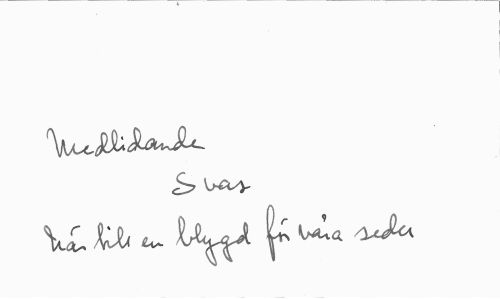 Medlidande
Svar
en blygd för våra seder